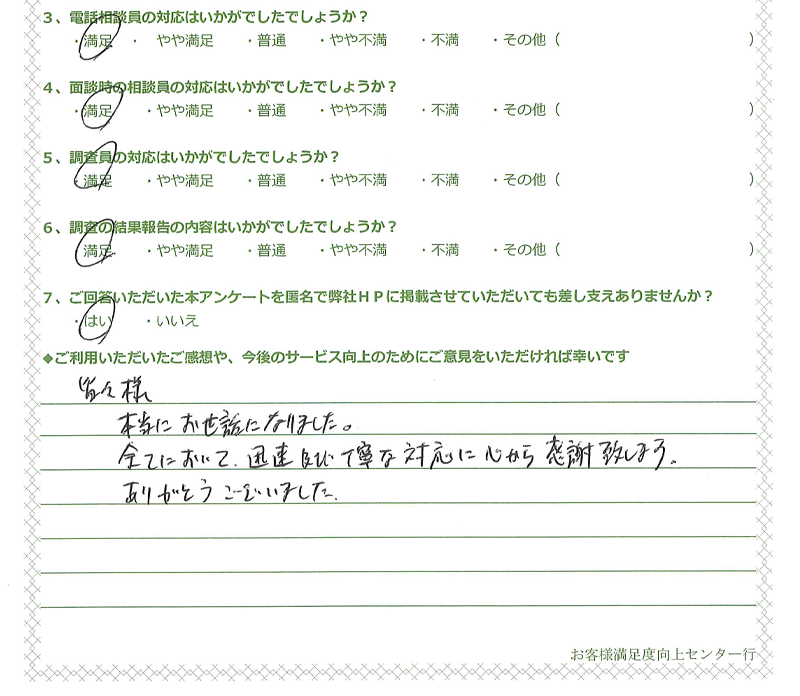 3、電話相談員の対応はいかがでしたでしょうか？
・満足 ・ やや満足 ・普通 ・やや不満 ・不満 ・その他（ ）
4、面談時の相談員の対応はいかがでしたでしょうか？
・満足 ・やや満足 ・普通 ・やや不満 ・不満 ・その他（ ）
5、調査員の対応はいかがでしたでしょうか？
・満足 ・やや満足 ・普通 ・やや不満 ・不満 ・その他（ ）
6、調査の結果報告の内容はいかがでしたでしょうか？
・満足 ・やや満足 ・普通 ・やや不満 ・不満 ・その他（ ）
7、ご回答いただいた本アンケートを匿名で弊社ＨＰに掲載させていただいても差し支えありませんか？
・はい ・いいえ
◆ご利用いただいたご感想や、今後のサービス向上のためにご意見をいただければ幸いです
皆々様
本当にお世話になりました。
全てにおいて、迅速及び丁寧な対応に心から感謝致します。
ありがとうございました。
お客様満足度向上センター行